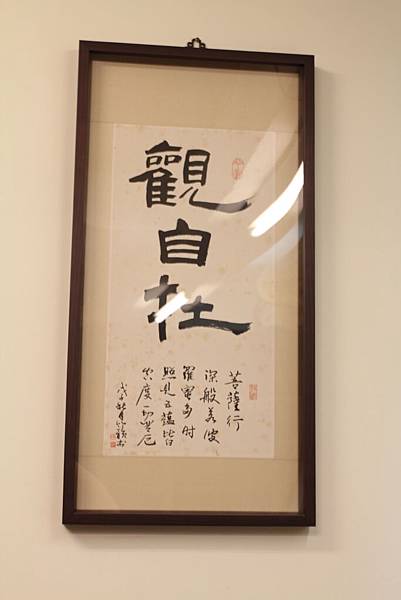 觀自在
菩薩行
深般若波
羅蜜多时
照見五蘊皆
空度一切苦厄
戊子秋月